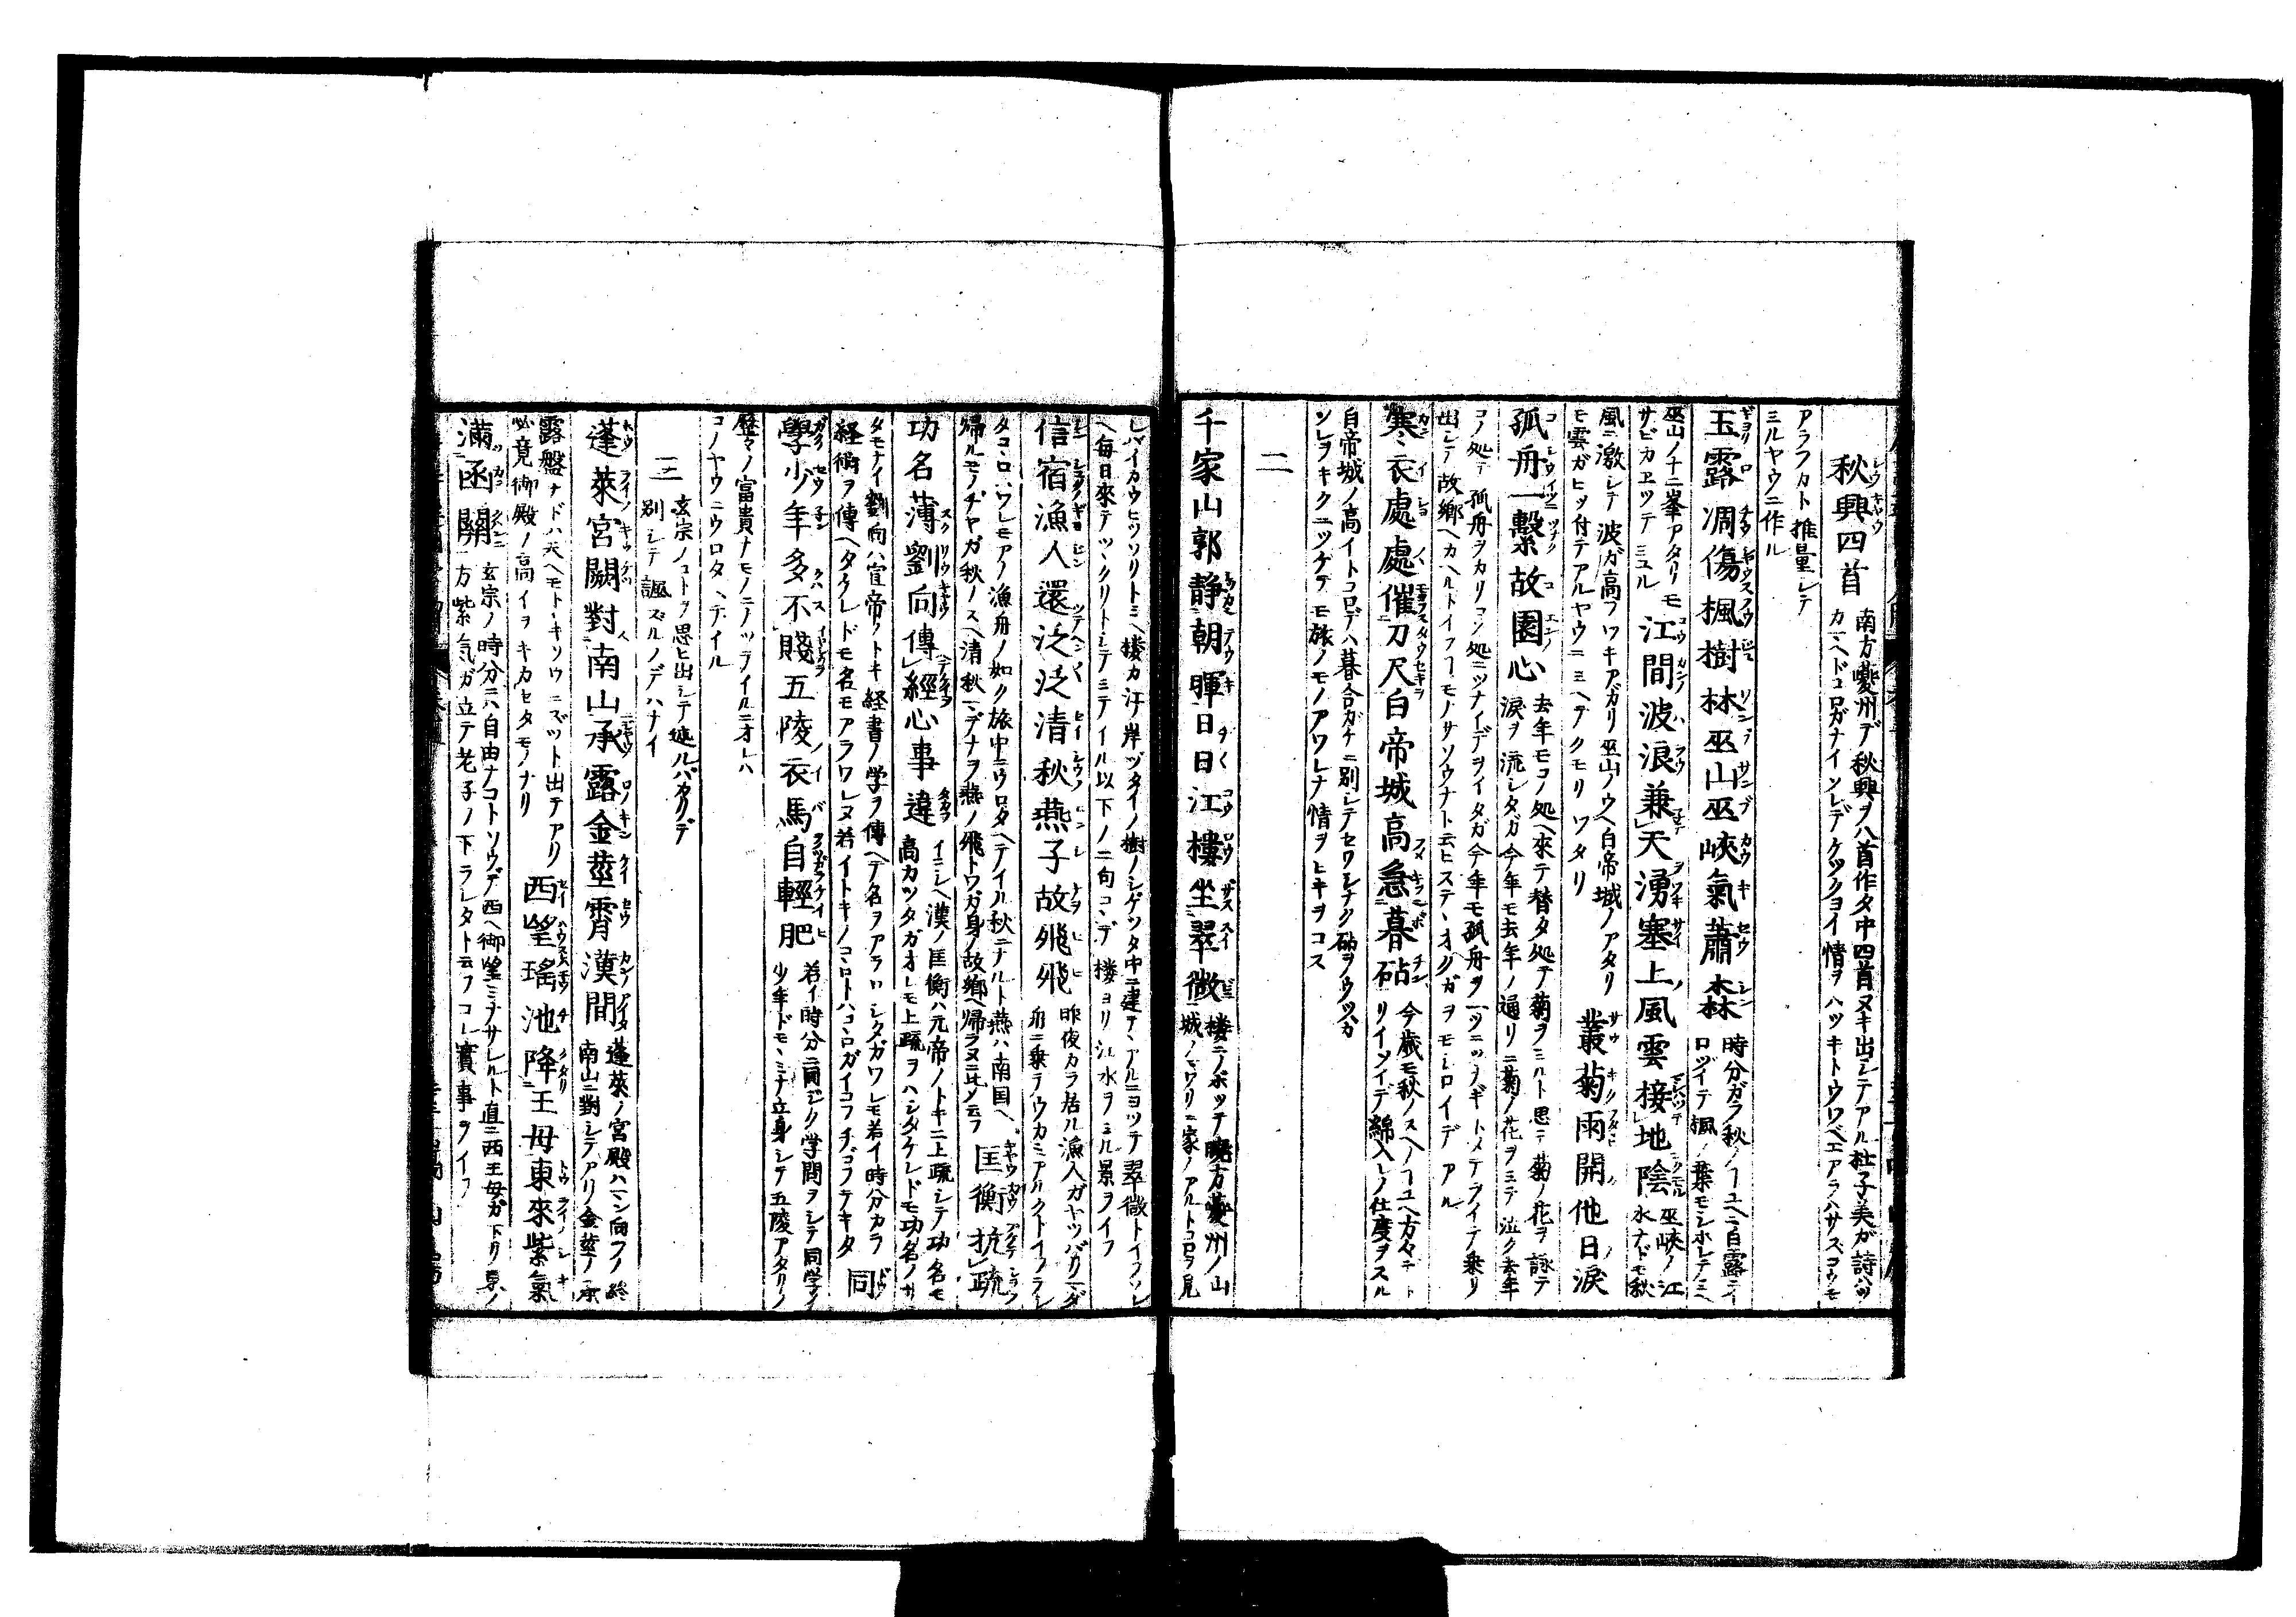 秋興四首 南方夔州デ秋興ヲ八首作タ中四首ヌキ出シテアル杜子美ガ詩ハツ
カミドコロガナイソレデケツクヨイ情ヲハツキトウワベエアラハサズコウモ
アラフカト推量シテ
ミルヤウニ作ル
玉露凋傷楓樹林巫山巫峽氣蕭森 時分ガラ秋ノコユヘニ白露ニイ
ロヅイテ楓ノ葉モシホレテミヘ
巫山ノ十二峯アタリモ
サビカエツテミユル
江間波浪兼天湧塞上風雲接地陰 巫峽ノ江
水ナドモ秋
風ニ激シテ波ガ高フワキアガリ巫山ノウヘ白帝城ノアタリ
モ雲ガヒツ付テアルヤウニミヘテクモリワタリ
叢菊兩開他日淚
孤舟一繫故園心 去年モコノ処ヘ來テ替タ処デ菊ヲミルト思テ菊ノ花ヲ詠テ
淚ヲ流シタガ今年モ去年ノ通リニ菊ノ花ヲミテ泣ク去年
コノ処デ孤舟ヲカリコノ処ニツナイデヲイタガ今年モ孤舟ヲ一ツニツナギトメテヲイテ乗リ
出シテ故鄉ヘカヘルトイフコモノサソウナト云ヒステヽオクガヲモシロイデアル
寒衣處處催刀尺白帝城高急暮砧 今歳モ秋ノスヘノコユヘ方々デ
リイソイデ綿入レノ仕度ヲスル
白帝城ノ高イトコロデハ暮合ガチニ別シテセワシナク砧ヲウツガ
ソレヲキクニツケテモ旅ノモノアワレナ情ヲヒキヲコス
二
千家山郭靜朝暉日日江樓坐翠微 楼ニノボツテ曉方夔州ノ山
城ノマワリニ家ノアルトコロヲ見
レバイカウヒツソリトミヘ楼カ江岸ヅタイノ樹ノシゲツタ中ニ建テヽアルニヨツテ翠微トイフソレ
ヘ毎日來テツヽクリトシテミテイル以下ノ二句コヽデ楼ヨリ江水ヲミル景ヲイフ
信宿漁人還泛泛清秋燕子故飛飛 昨夜カラ居ル漁人ガヤツバリマダ
舟ニ乗テウカミアルクトイフラシ
タコヽロハワレモアノ漁舟ノ如ク旅中ニウロタヘテイル秋ニナルト燕ハ南国ヘ
帰ルモノヂヤガ秋ノスヘ清秋マデナヲ燕ノ飛トワガ身ノ故郷ヘ帰ラヌニ比メ云フ
匡衡抗疏
功名薄劉向傳經心事違 イニシヘ漢ノ匡衡ハ元帝ノトキニ上疏シテ功名モ
高カツタガオレモ上疏ヲハシタケレドモ功名ノサ
タモナイ劉向ハ宣帝ノトキ経書ノ学ヲ傳ヘテ名ヲアラワシタガワレモ若イ時分カラ
経術ヲ傳ヘタケレドモ名モアラワレヌ若イトキノコヽロトハコヽロガイコフチゴフテキタ
同
學少年多不賤五陵衣馬自輕肥 若イ時分ニ同ジク学問ヲシテ同学ノ
少年ドモヽミナ立身シテ五陵アタリノ
歴々ノ富貴ナモノニナツテイルニオレハ
コノヤウニウロタヘテイル
三 玄宗ノコトヲ思ヒ出シテ述ルバカリデ
別シテ諷スルノデハナイ
蓬萊宮闕對南山承露金莖霄漢間 蓬萊ノ宮殿ハマン向フノ終
南山ニ對シテアリ金莖ノ承
露盤ナドハ天ヘモトヽキソウニズツト出テアリ
必竟御殿ノ高イヲキカセタモノナリ
西望瑤池降王母東來紫氣
滿函關 玄宗ノ時分ニハ自由ナコトソウデ西ヘ御望ミナサレルト直ニ西王母ガ下リ東ノ
方紫気ガ立テ老子ノ下ラレタト云フコレ實事ヲイフ